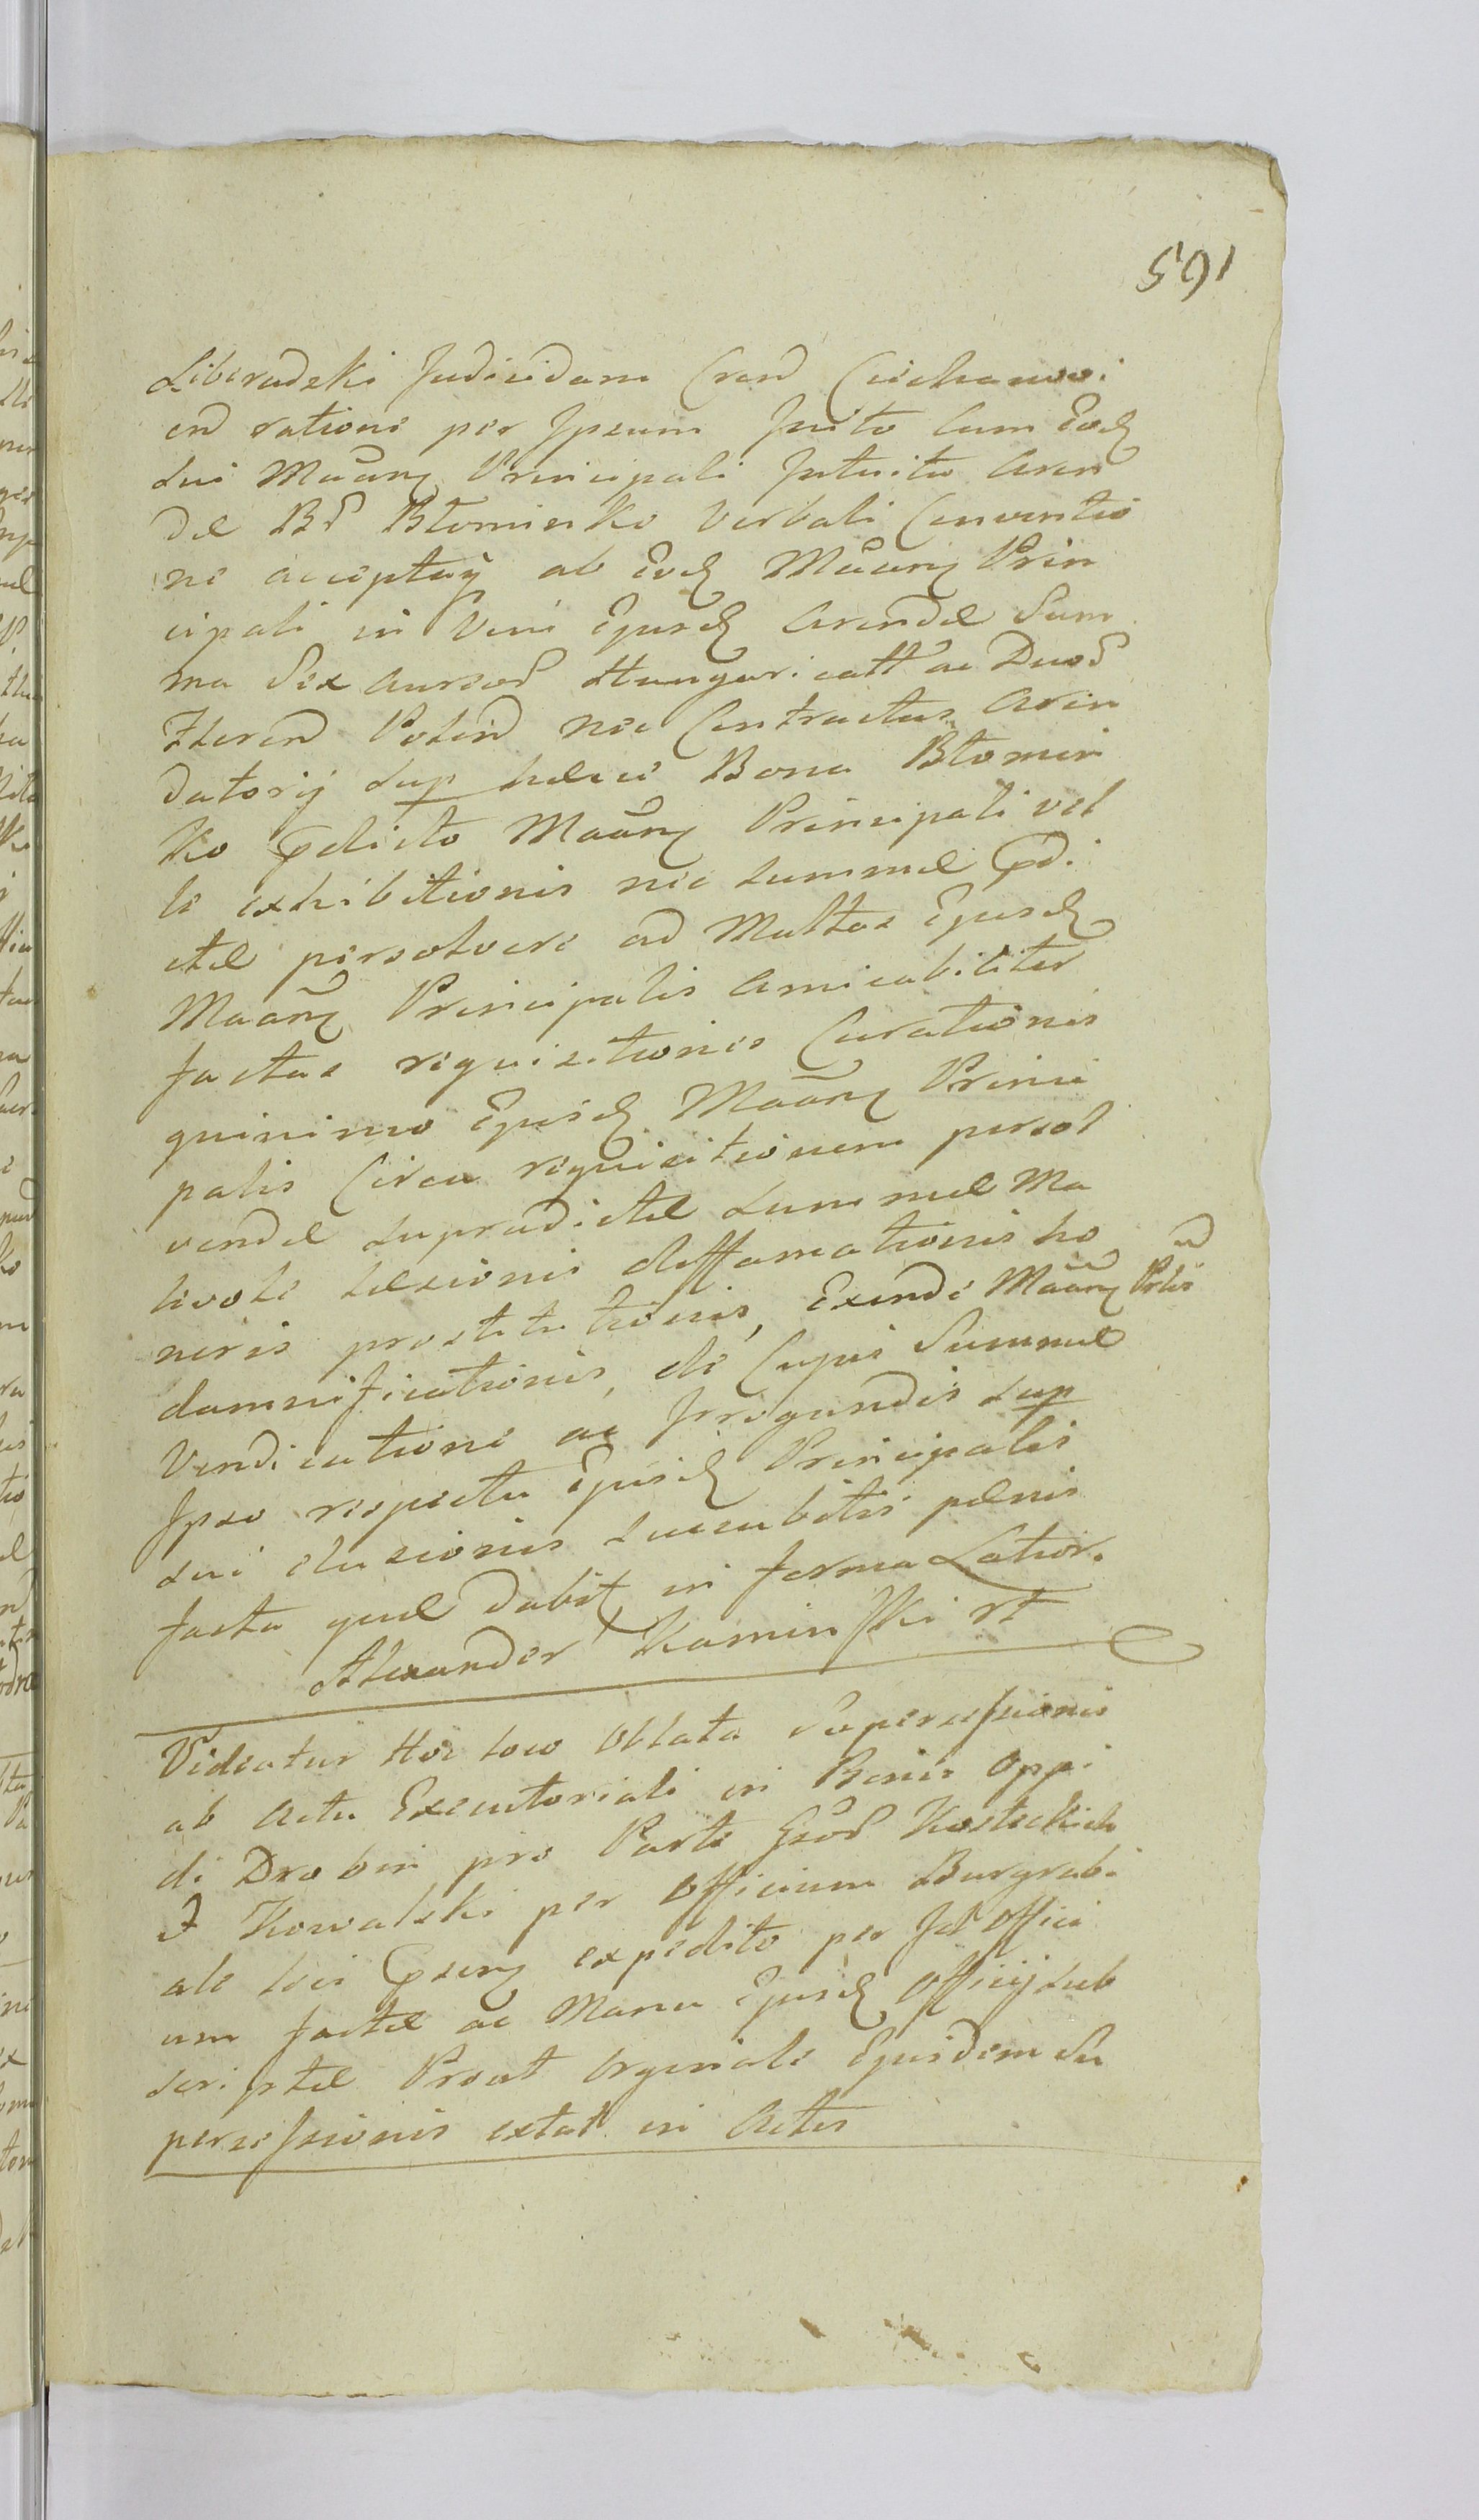 591
Liberadzki Judicidam Cren Ciechanovi
en ratione per Ipsum Inito Cum Eod
sui Maang Principali Intuitu Aren
dæ Bd Błomisko Verbali Conventio
ne acceptaq ab Eod Maang Prin
cipali in Vim Ejusd Arendæ Sum
ma Sex Aureod Hungaricall ac Duod
Floren Polen nec Contractus Aren
datorij sup hæcce Bona Błomis
ko predicto Maang Principali vel
le exhibitionis nec summæ predi
ctæ persolvere ad Multas Ejusd
Maang Principalis Amicabiliter
factas requisitiones Curationis
quinimo Ejusd Maang Princi
palis Circa requisitionem persol
vendæ supradictæ summæ Ma
livole læsionis diffamationis ho
neris prostitutionis, Exinde Maang Prlis
damnificationis, de Cujus Summæ
Vendicatione ac Irrogandis sup
Ipso respectu Ejusd Principalis
sui elusionis succubitis pænis
facta quæ dabit in forma Latior.
Alexander Kaminski rt
Videatur Hoc loco Oblata Supersessionis
ab Actu Executoriali in Bonis Oppi
di Drobin pro Parte Gsod Kosteckich
& Kowalski per Officium Burgrabi
ale loci preseng expedito per Id Offici
um factæ ac Manu Ejusd Officij sub
scriptæ Prout Orginale Ejusdem Su
persessionis extat in Actis